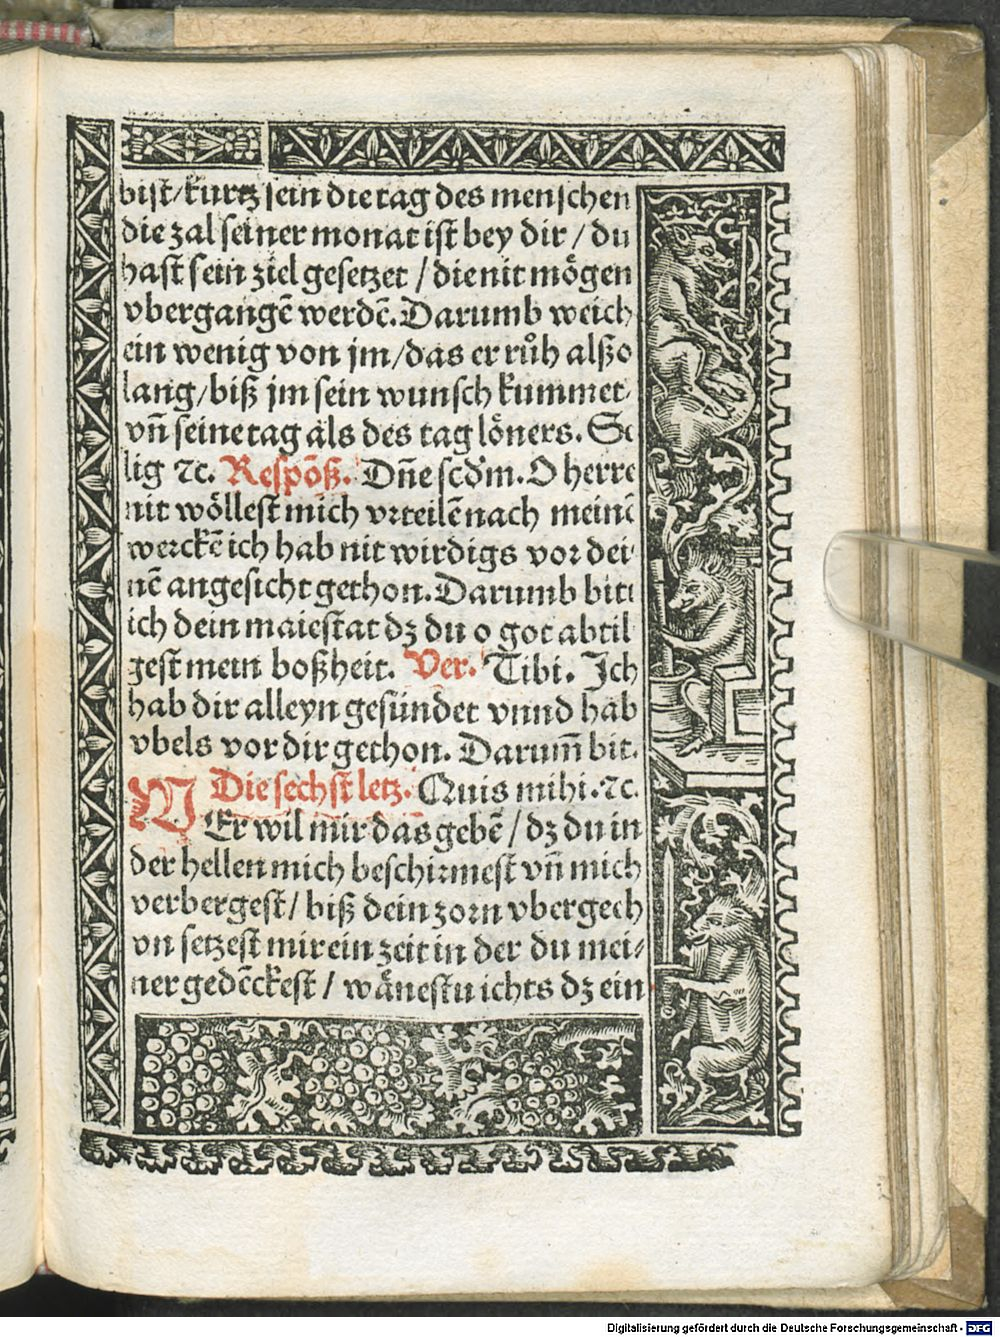 bist/kurtz sein die tag des menschen
die zal seiner monat ist bey dir / du
hast sein ziel gesetzet / die nit mögen
vbergangē werdē. Darumb weich
ein wenig von jm/das er růh alßo
lang/biß jm sein wunsch kummet/
vn̄ seine tag als des tag löners. Se
lig ⁊c. Respōß. Dn̄e scdm̄. O herre
nit wöllest mich vrteilē nach meinē
werckē ich hab nit wirdigs vor dei
nē angesicht gethon. Darumb bitt
ich dein maiestat dz du o got abtil
gest mein boßheit. Ver. Tibi. Ich
hab dir alleyn gesündet vnnd hab
vbels vor dir gethon. Darum̄ bit.
Die sechst letz. Quis mihi. ⁊c.
WEr wil mir das gebē / dz du in
der hellen mich beschirmest vn̄ mich
verbergest / biß dein zorn vbergech
vn setzest mir ein zeit in der du mei/
ner gedēckest / wänestu ichts dz ein
Digitalisierung gefördert durch die Deutsche Forschungsgemeinschaft - DFG